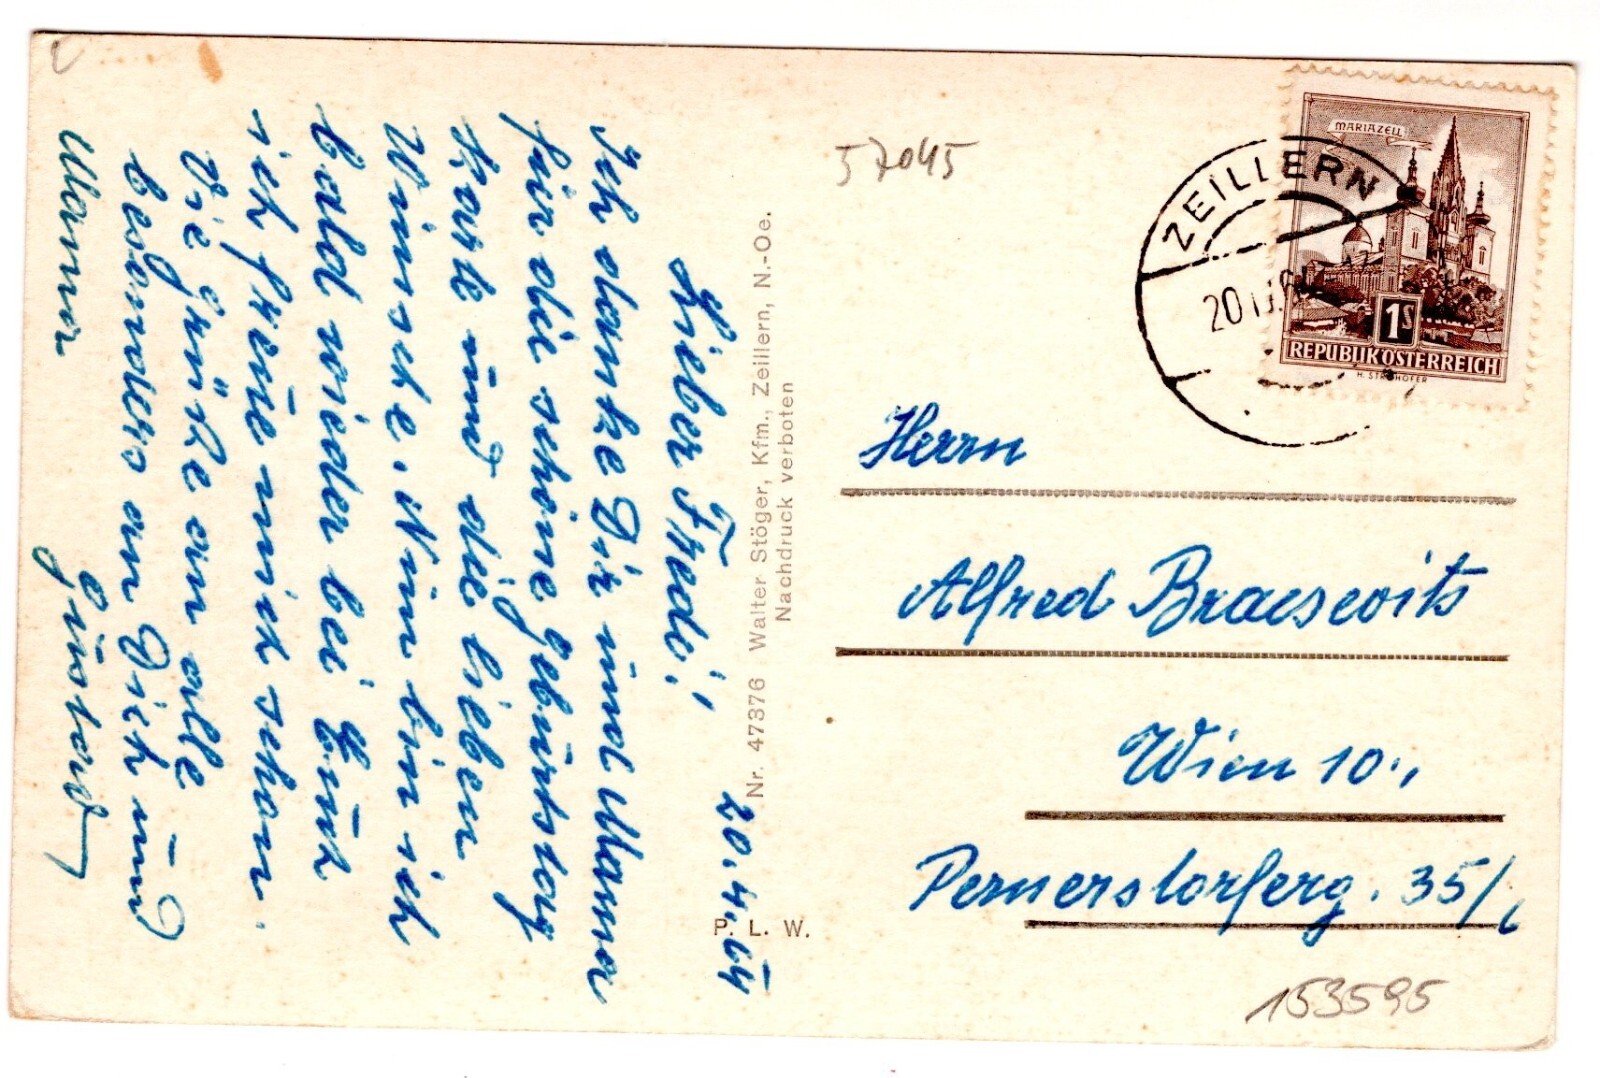 20.4.64
Lieber Fredi!
Ich danke Dir und Mama
für die schöne Geburtstag
Karte und die lieben
Wünsche. Nun bin ich
bald wieder bei Euch
ich freue mich schon.
Viele Grüße an alle
besonders an Dich und
Mama
Gustav
Nr. 47376 Walter Stöger, Kfm., Zeillern, N.-Oe.
Nachdruck verboten
P. L. W.
57045
MARIAZELL
1S
REPUBLIK ÖSTERREICH
H. STROHOFER
ZEILLERN
Herrn
Alfred
Wien 10.,
Pernerstorferg. 35/6
153595